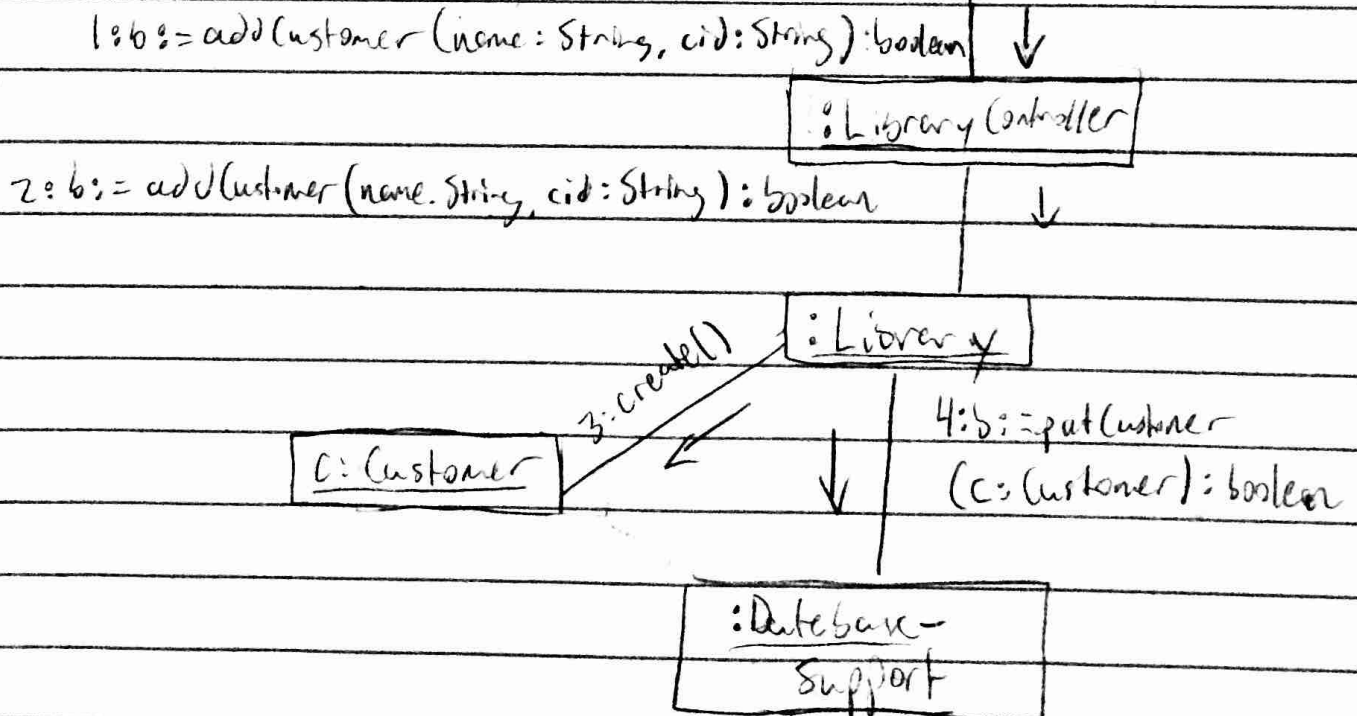 1:b:=addCustomer(name: String, cid: String):boolean
:LibraryController
2:b:=addCustomer(name.String, cid: String):boolean
:Library
3:create()
4:b:=putCustomer
(c:Customer):boolean
c:Customer
:Database-
Support